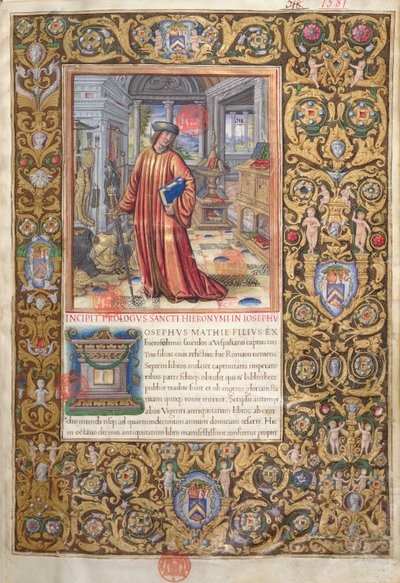 1581
INCIPIT PROLOGVS SANCTI HIERONYMI IN IOSEPHV
IOSEPHVS MATHIE FILIVS EX
hierosolimis sacerdos a Vespasiano captus cum
tito filio eius relictus hic Romam ueniens
Septem libros iudaice captiuitatis imperato
ribus patri filioque obtulit qui et bibliothece
publice traditi sunt et ob ingenij gloriam sta
tuam quoque rome meruit Scripsit autem et
alios Viginti antiquitatum libros ab exor
dio mundi usque ad quartumdecimum annum domiciani cesaris Hic
in octauo decimo antiquitatum libro manifestissime confitetur propter